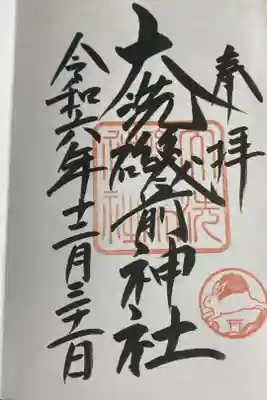 奉拝
大洗磯前神社
令和六年十二月三十一日